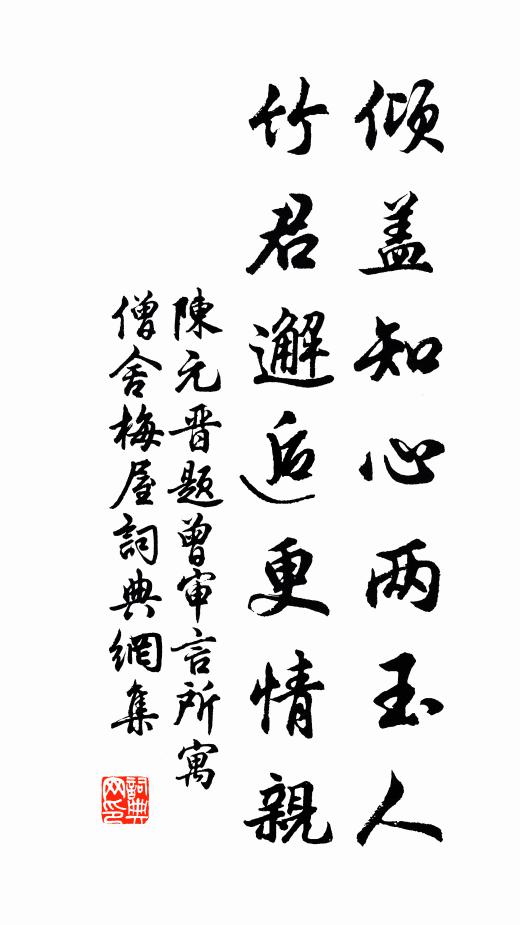 倾盖知心两玉人
竹君邂逅更情親
陳元晋题曾审言所寓
僧舍梅屋詞典網集
詞典網印